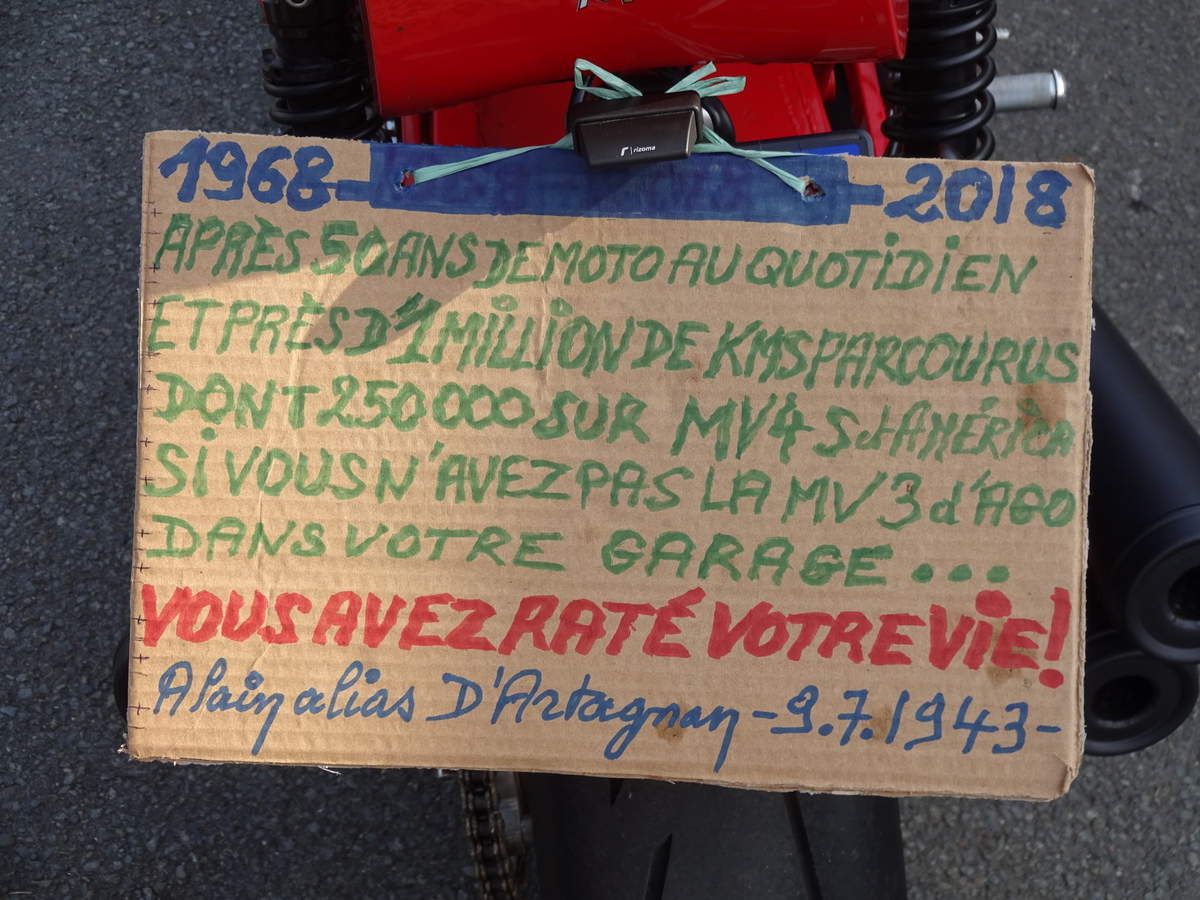 rizoma
1968 - 2018
APRÈS 50 ANS DE MOTO AU QUOTIDIEN
ET PRÈS D'1 MILLION DE KMS PARCOURUS
DONT 250 000 SUR MV4 S et AMÉRICA
SI VOUS N'AVEZ PAS LA MV 3 d'AGO
DANS VOTRE GARAGE...
VOUS AVEZ RATÉ VOTRE VIE!
Alain alias D'Artagnan - 9.7.1943 -